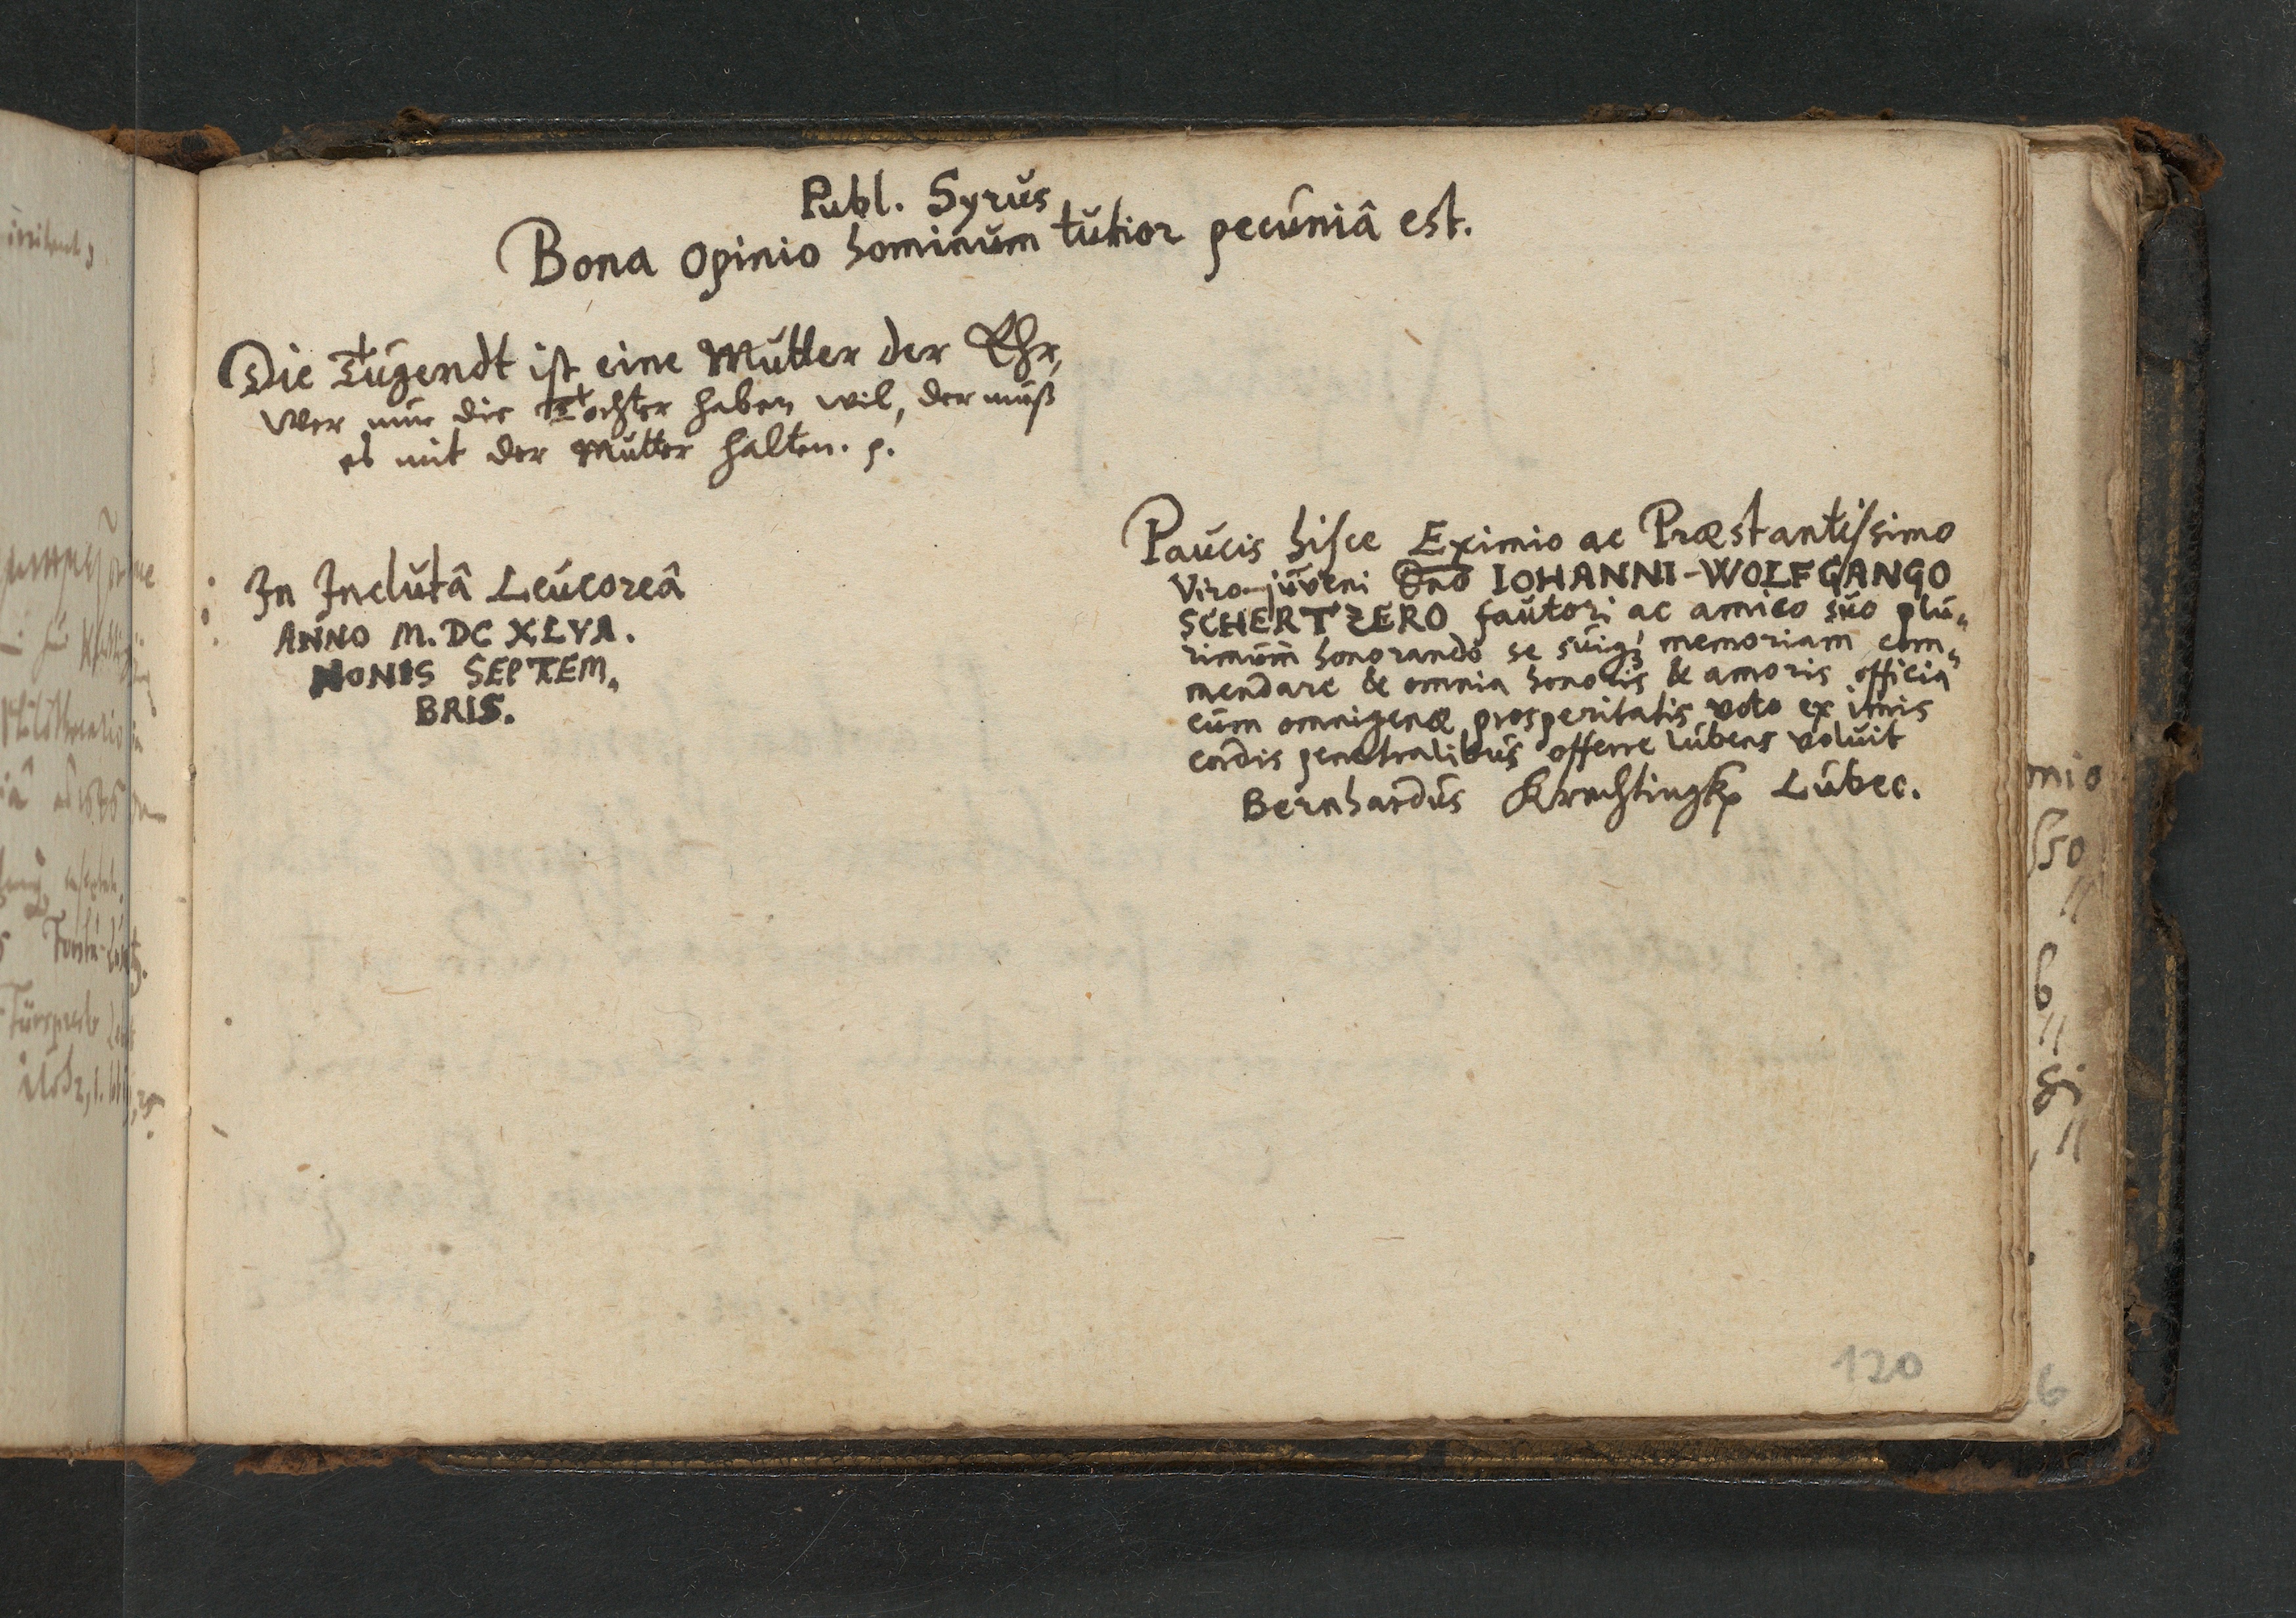 Publ. Syrus
Bona opinio hominum tutior pecuniâ est.
Die Tugendt ist eine Mutter der Ehr,
Wer nun die Tochter haben wil, der muß
es mit der Mutter halten.
In Inclutâ Leucoreâ
ANNO M. DC XLVI.
NONIS SEPTEM„
BRIS.
Paucis hisce Eximio ac Præstantissimo
Viro-juveni Dno IOHANNI-WOLFGANGO
SCHERTZERO fautori ac amico suo plu„
rimum honorando se suiq; memoriam com„
mendare & omnia honoris & amoris officia
cum omnigenæ prosperitatis voto ex imis
cordis penetralibus offerre lubens voluit
Bernhardus Krechtingk Lubec.
120